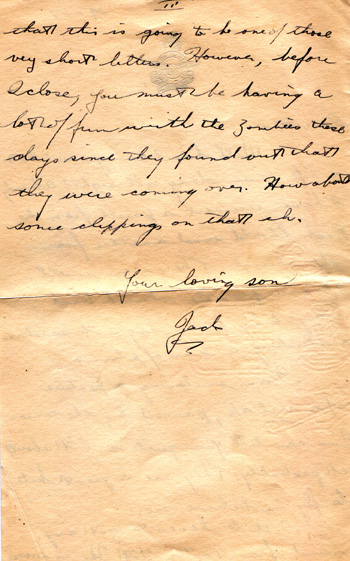 III
that this is going to be one of those
very short letters. However, before
I close, you must be having a
lot of fun with the Zombies these
days since they found out that
they were coming over. How about
some clippings on that eh.
Your loving son
Jack